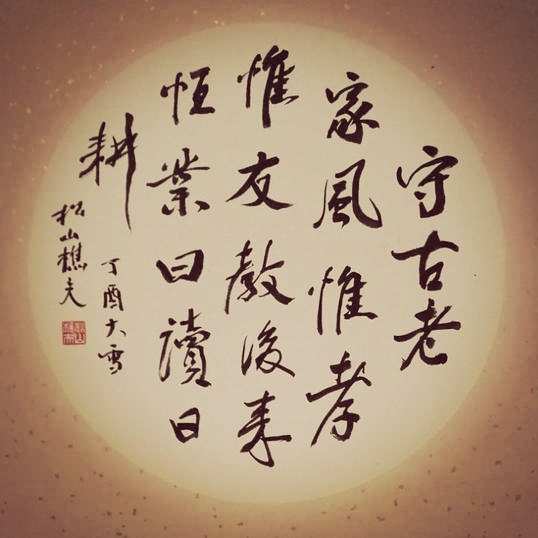 守古老
家風惟孝
惟友教後来
恒業曰讀曰
耕
丁酉大雪
松山樵夫